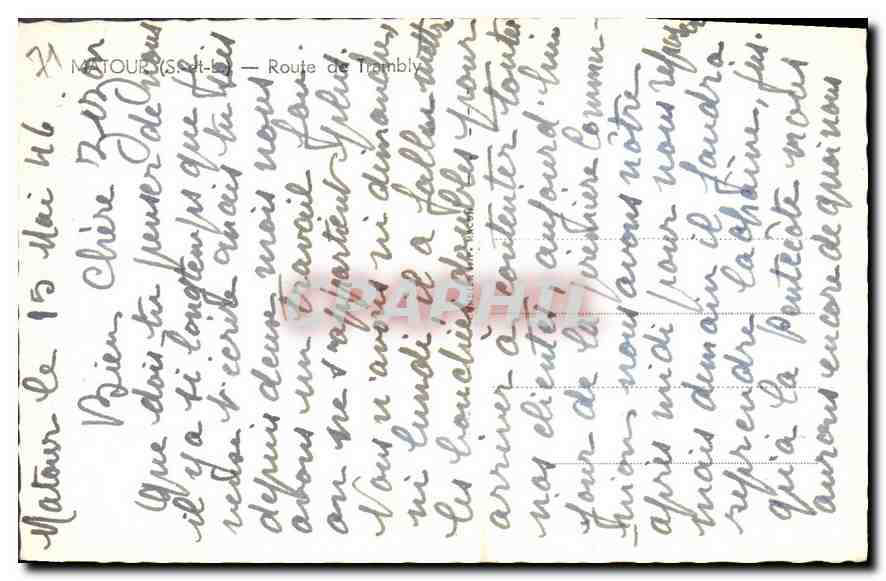 71
MATOUR (S.-et-L.) — Route de Trambly
Matour le 15 Mai 46.
Bien chère Zezor
que dois tu penser de nous
il y a si longtemps que je
t'écrit mais tu sais
depuis deux mois nous
avons un travail fou.
on ne s'appartient plus.
Nous n'avons ni dimanches,
ni lundi il a fallu mettre
les bouchées doubles pour
arriver à contenter toutes
nos clientes. aujourd'hui
jour de la première Commu-
nion, nous avons nôtre
après midi pour nous reposer
mais demain il faudra
reprendre la chaine, jus.
qu'à la pentecôte mais
aurons encore de quoi nous
SPAPHIL